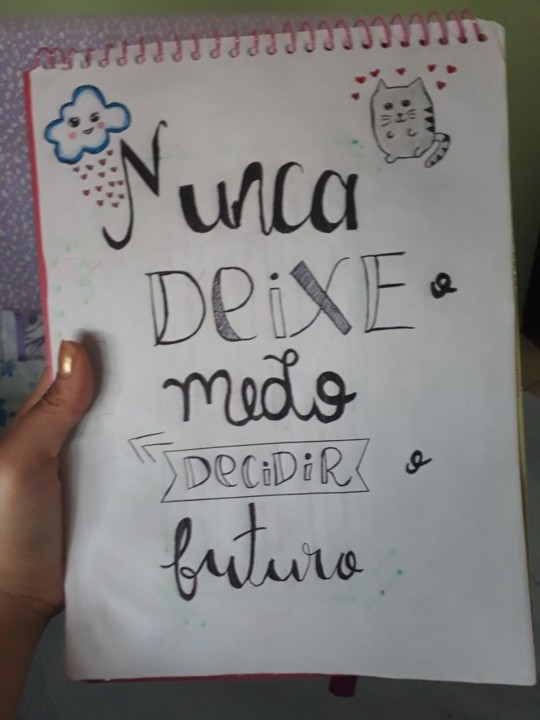 Nunca
DeiXE o
medo
DeCiDiR o
futuro